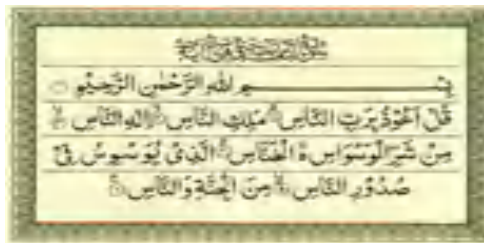 بِسْمِ اللهِ الرَّحْمٰنِ الرَّحِيْمِ
قُلْ اَعُوْذُ بِرَبِّ النَّاسِ مَلِكِ النَّاسِ اِلٰهِ النَّاسِ
مِنْ شَرِّ الْوَسْوَاسِ الْخَنَّاسِ الَّذِيْ يُوَسْوِسُ فِيْ
صُدُوْرِ النَّاسِ مِنَ الْجِنَّةِ وَالنَّاسِ